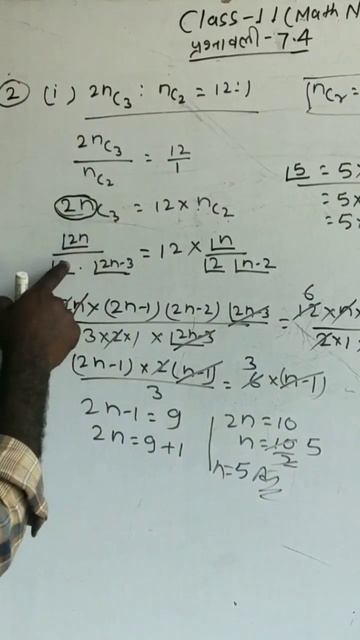 Class-11 (Math N
प्रश्नावली - 7.4
② (i) 2nC₃ : nC₂ = 12:1
[nCr =
2nC₃ / nC₂ = 12/1
2nC₃ = 12 × nC₂
⌊5 = 5×
= 5×
= 5×
⌊2n / ⌊2n-3 = 12 × ⌊n / ⌊2 ⌊n-2
2n × (2n-1) (2n-2) ⌊2n-3 / 3×2×1 × ⌊2n-3 = 12 × n × / 2×1
6
(2n-1) × 2(n-1) / 3 = 6 × (n-1)
3
2n-1 = 9
2n = 9+1
2n = 10
n = 10/2 5
n=5 Ans